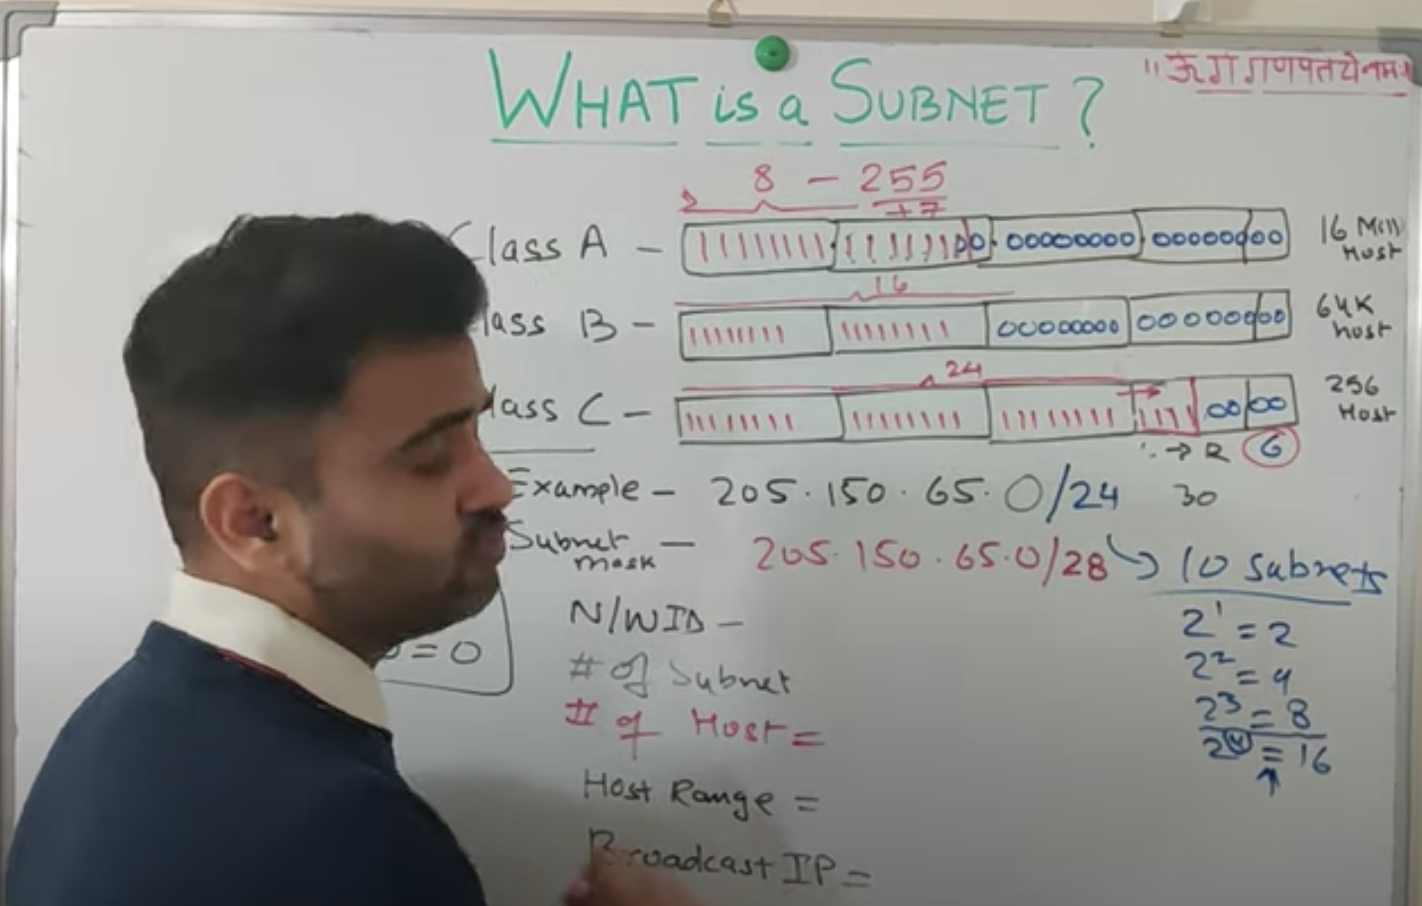 WHAT is a SUBNET ?
"ॐ गं गणपतये नमः"
8 - 255
+7
Class A - 11111111.11111100.00000000.00000000 16 Mill Host
16
lass B - 11111111 11111111 00000000 00000000 64K host
24
lass C - 11111111 11111111 11111111 1111 0000 256 Host
→ R 6
Example - 205.150.65.0/24 30
Subnet mask - 205.150.65.0/28 → 10 subnets
N/W ID -
2¹ = 2
= 0
# of Subnet
2² = 4
# of Host =
2³ = 8
2⁴ = 16
Host Range =
Broadcast IP =